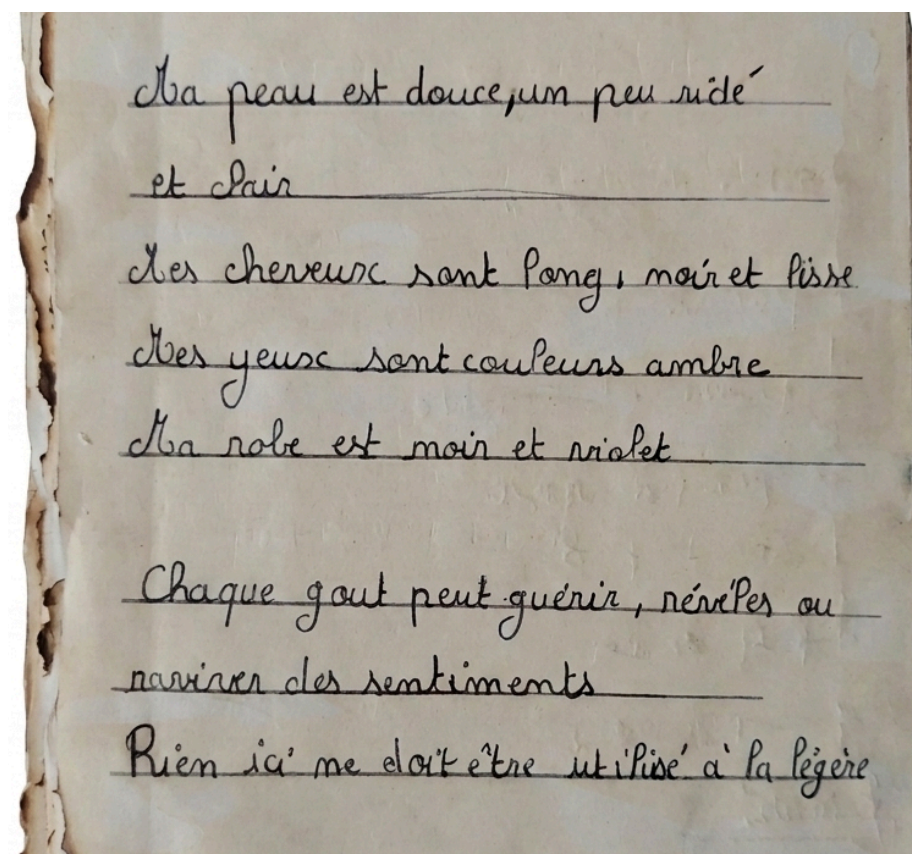 Ma peau est douce, un peu ridé
et clair
Mes cheveux sont long, noir et lisse
Mes yeux sont couleurs ambre
Ma robe est noir et violet
Chaque gout peut guérir, révéler ou
raviver des sentiments
Rien ici ne doit être utilisé à la légère